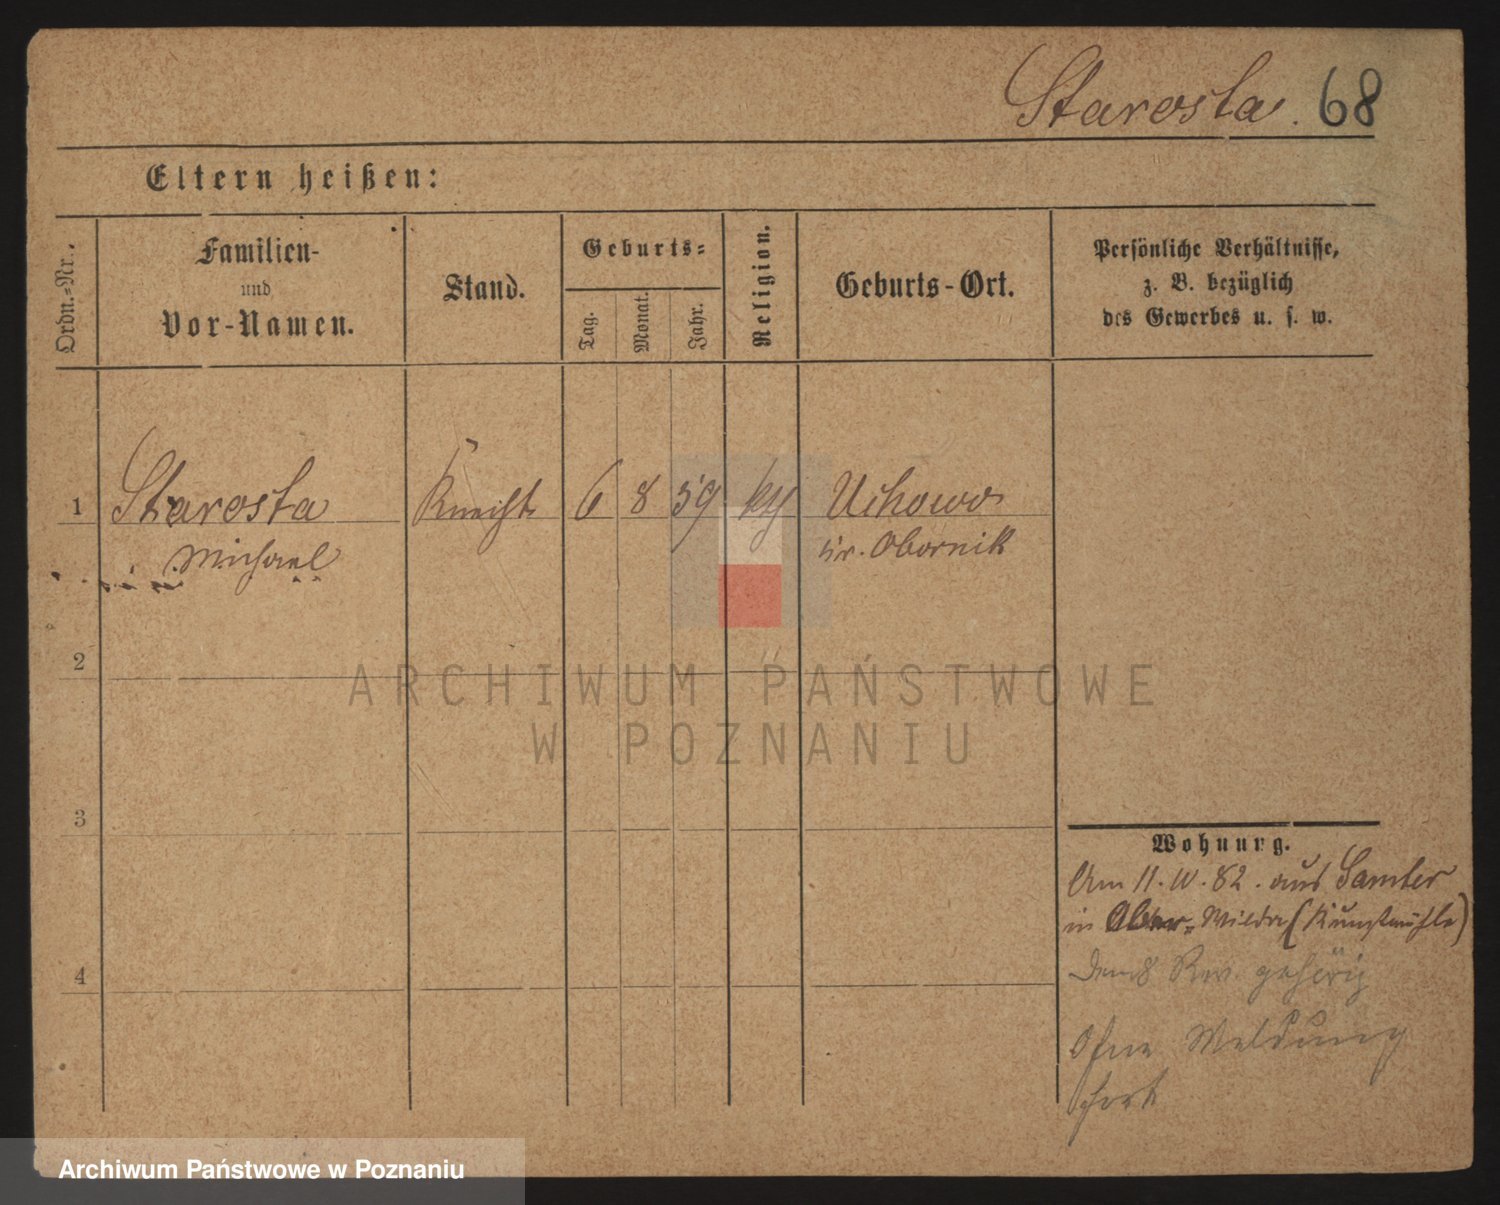 Starosta. 68
Eltern heißen:
Ordn.-Nr.
Familien-
und
Vor-Namen.
Stand.
Geburts-
Tag.
Monat.
Jahr.
Religion.
Geburts-Ort.
Persönliche Verhältnisse,
z. B. bezüglich
des Gewerbes u. s. w.
1 Starosta Knecht 6 8 59 Uchowo
Michael Kr. Obornik
2
3
4
Wohnung.
Am 11. IV. 82. aus Samter
in Ober-Wilda (Kunstmühle)
gehörig
Ohne Meldung
fort
ARCHIWUM PAŃSTWOWE
W POZNANIU
Archiwum Państwowe w Poznaniu